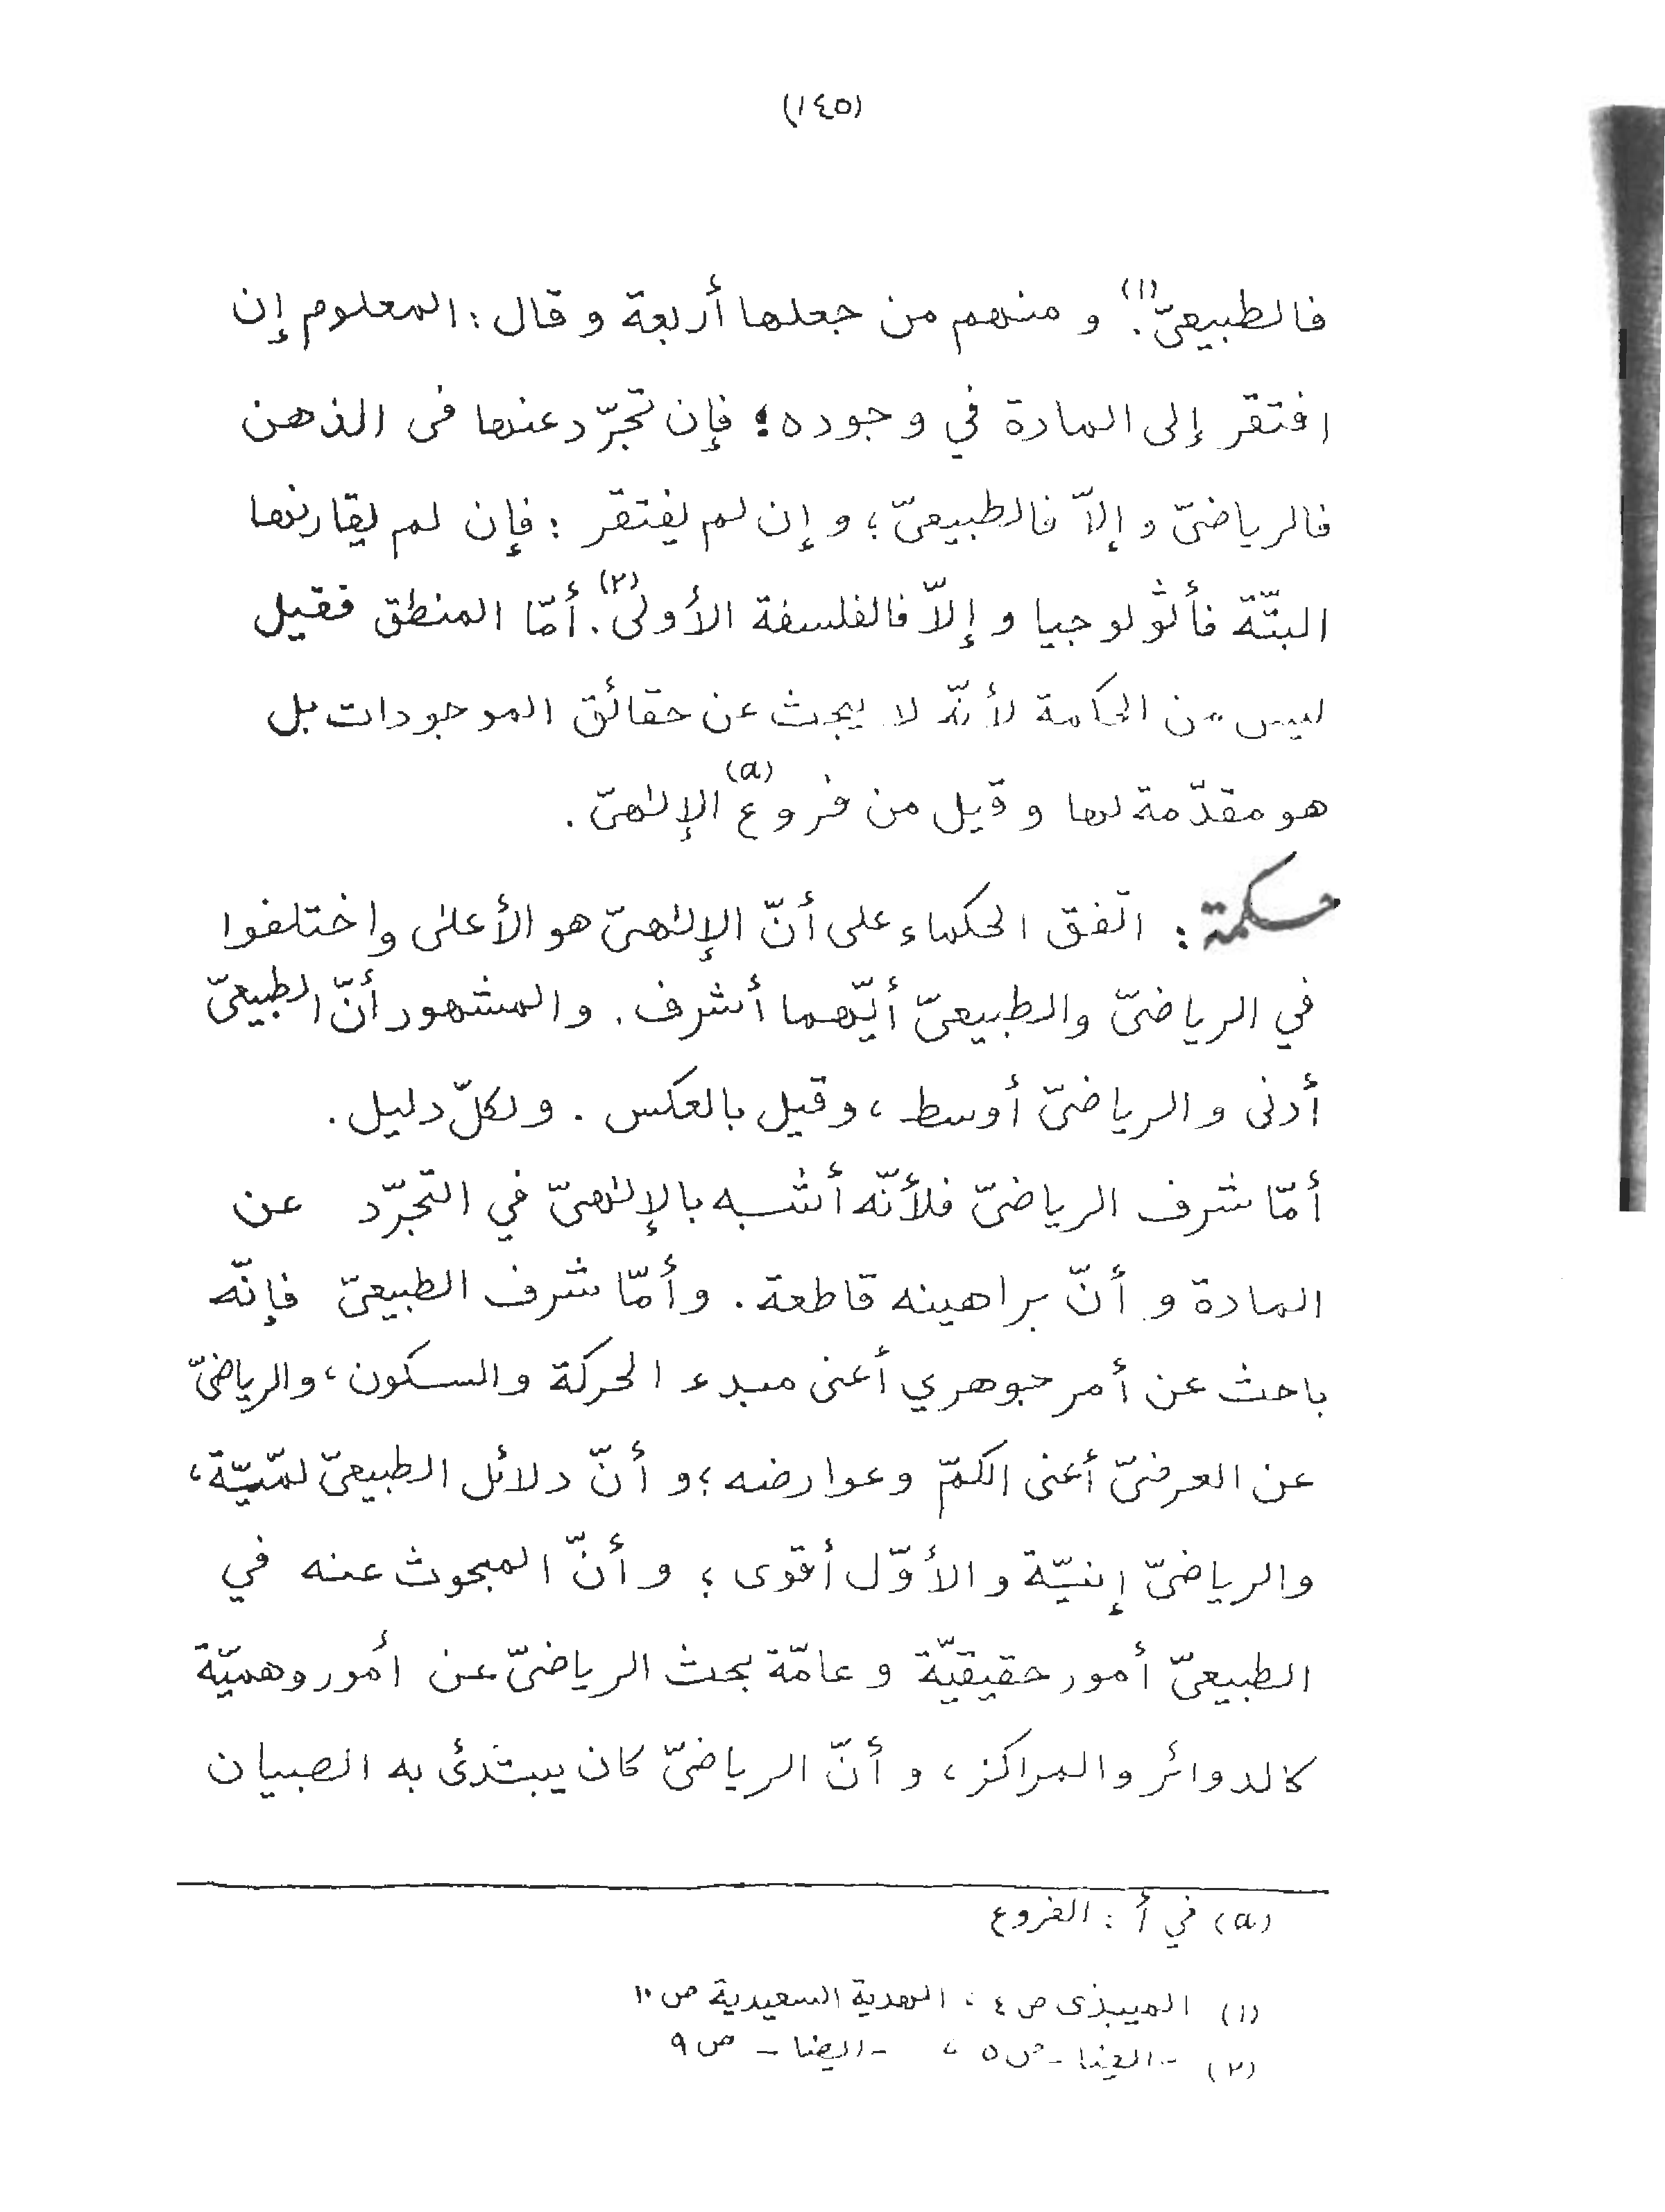 (١٤٥)
فالطبيعىّ(١). و منهم من جعلها أربعة و قال : المعلوم إن
افتقر إلى المادة في وجوده ؛ فإن تجرّد عنها فى الذهن
فالرياضىّ و إلاّ فالطبيعىّ ؛ و إن لم يفتقر : فإن لم يقارنها
البتّة فأثولوجيا و إلاّ فالفلسفة الأولىٰ(٢). أمّا المنطق فقيل
ليس من الحكمة لأنّه لا يبحث عن حقائق الموجودات بل
هو مقدّمة لها و قيل من فروع(a) الإلٰهىّ .
حكمة : اتّفق الحكماء على أنّ الإلٰهىّ هو الأعلىٰ واختلفوا
في الرياضىّ والطبيعىّ أيّهما أشرف . والمشهور أنّ الطبيعىّ
أدنى و الرياضىّ أوسط ، وقيل بالعكس . و لكلّ دليل .
أمّا شرف الرياضىّ فلأنّه أشبه بالإلٰهىّ في التجرّد عن
المادة و أنّ براهينه قاطعة . و أمّا شرف الطبيعىّ فإنّه
باحث عن أمر جوهري أعنى مبدء الحركة والسكون ، والرياضىّ
عن العرضىّ أعنى الكمّ وعوارضه ؛ و أنّ دلائل الطبيعىّ لمّيّة ،
والرياضىّ إنيّة و الأوّل أقوى ؛ و أنّ المبحوث عنه في
الطبيعىّ أمور حقيقيّة و عامّة بحث الرياضىّ عن أمور وهميّة
كالدوائر والمراكز ، و أنّ الرياضىّ كان يبتدئ به الصبيان
(a) في أ : الفروع
(١) الميبذى ص ٤ ، الهدية السعيدية ص ١٠
(٢) - ايضا - ص ٥ ، - ايضا - ص ٩